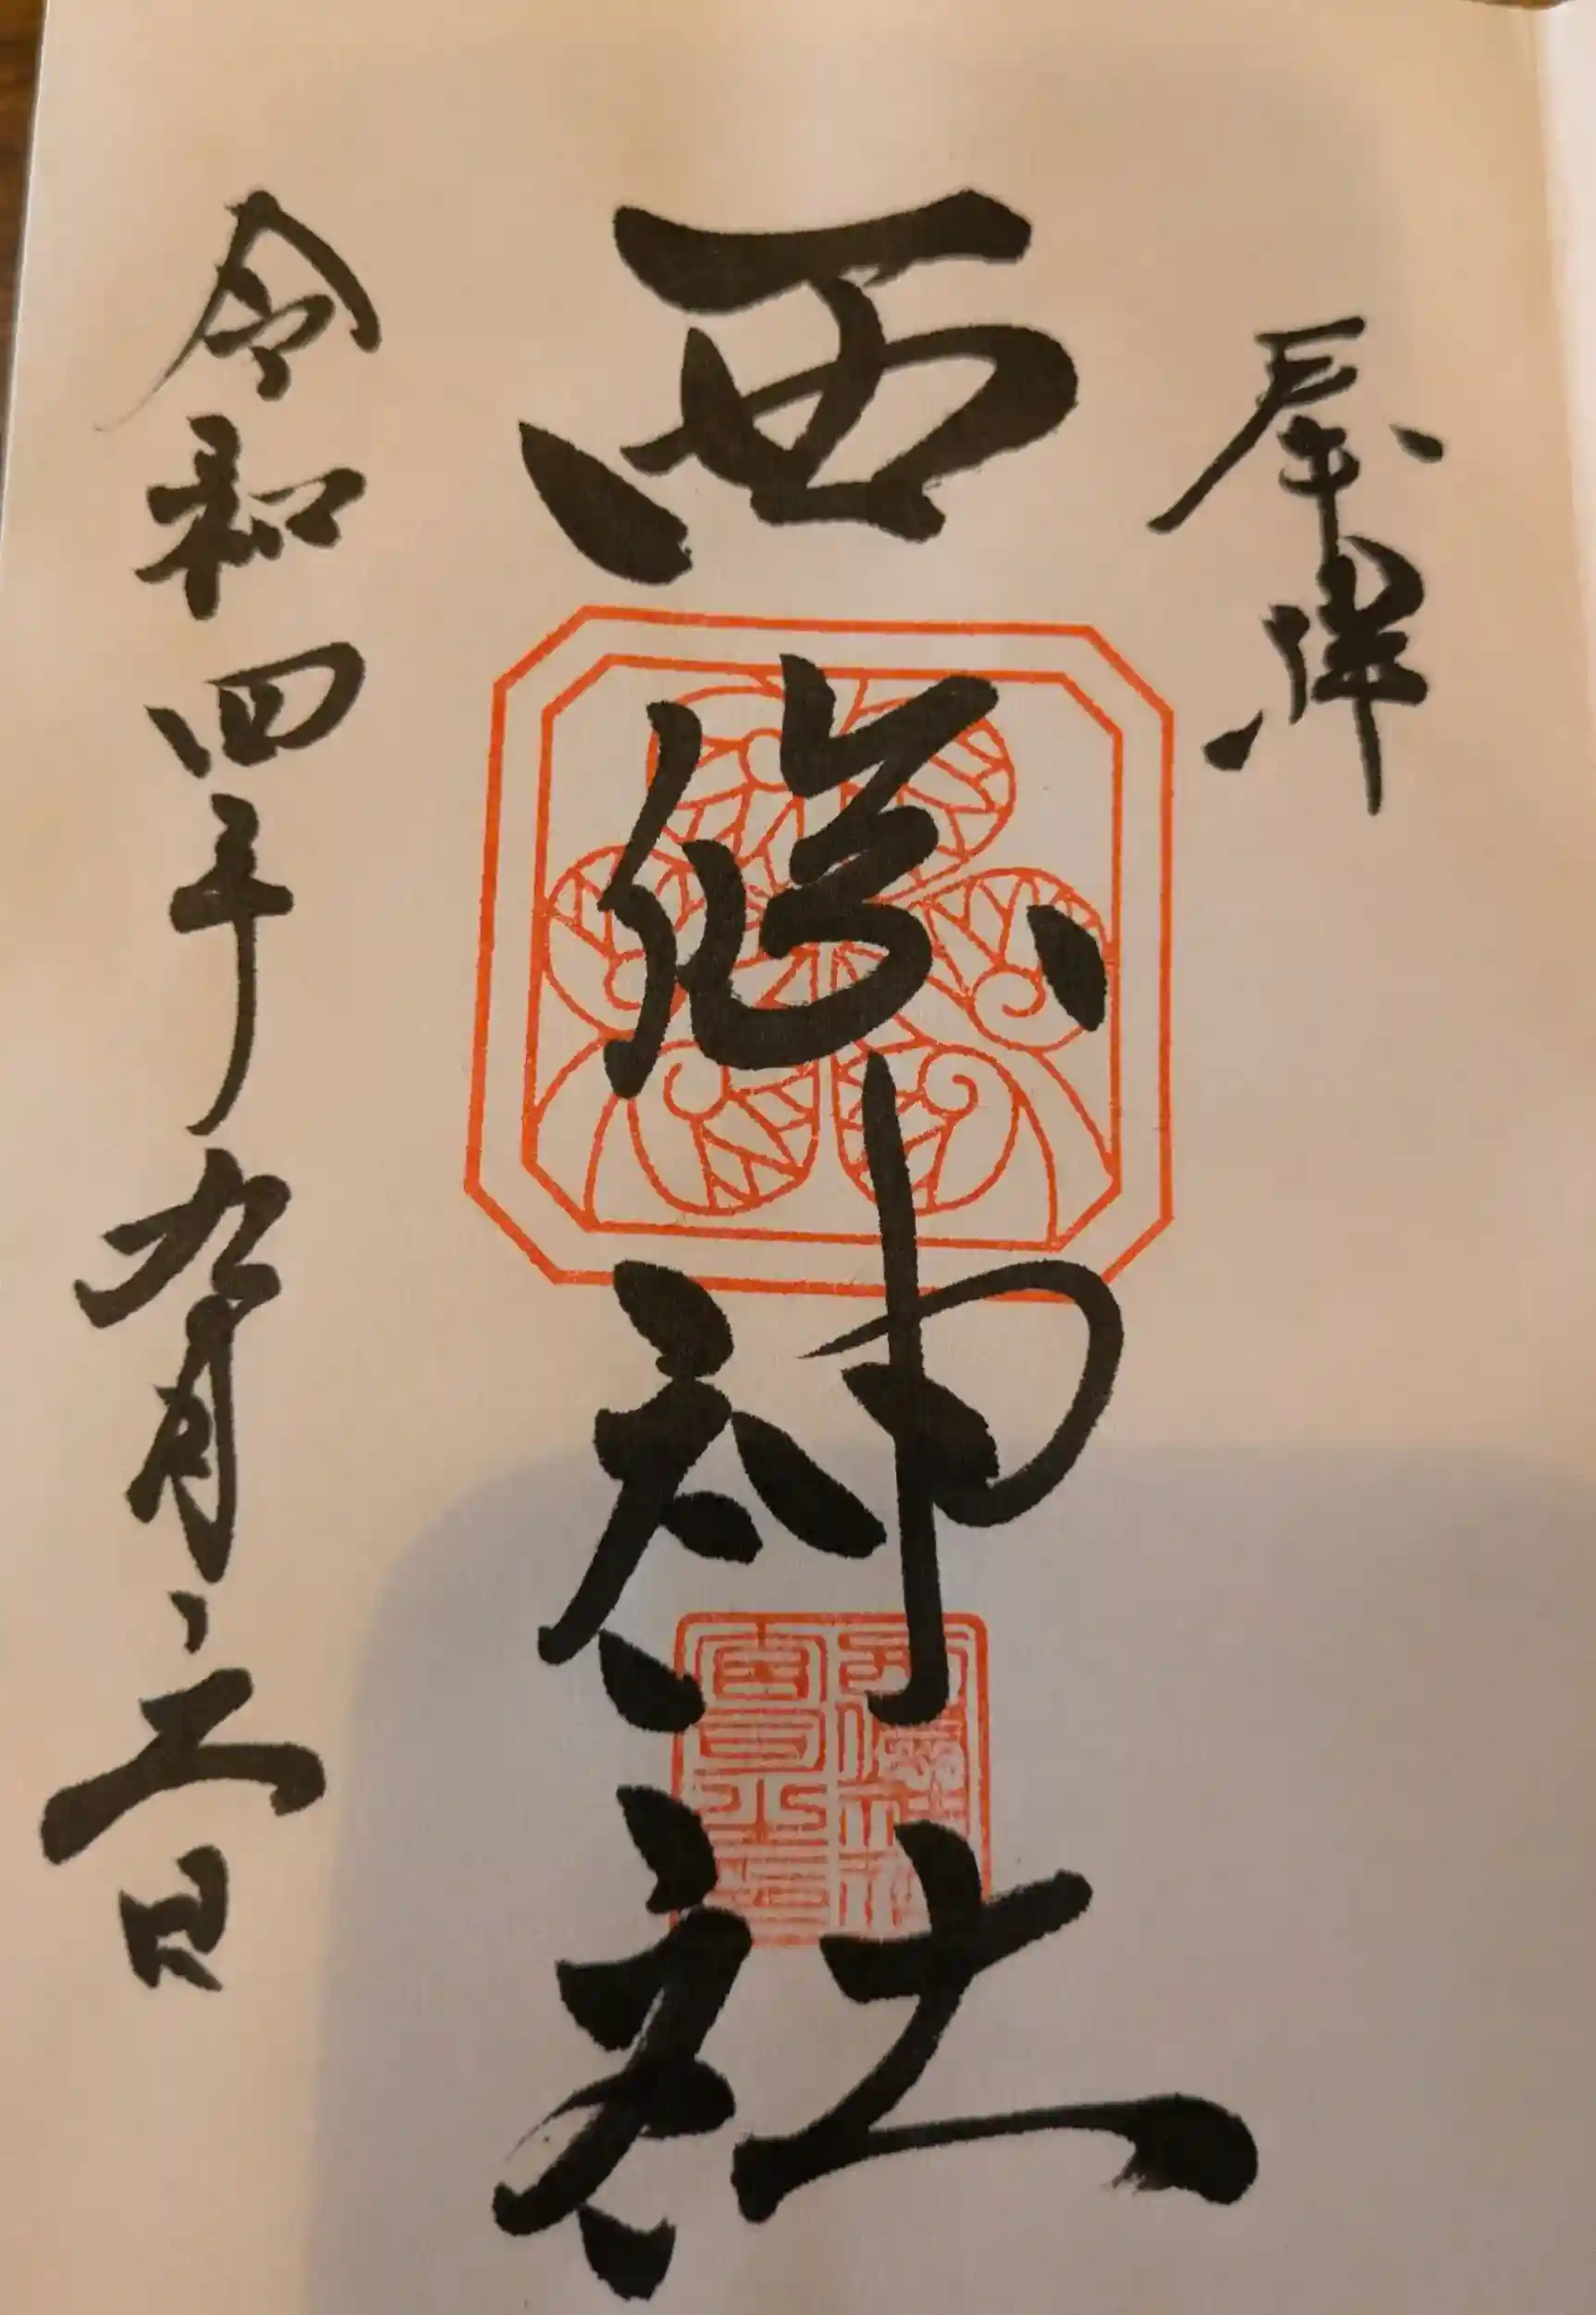 奉拝
西 神社
令和四年九月 日